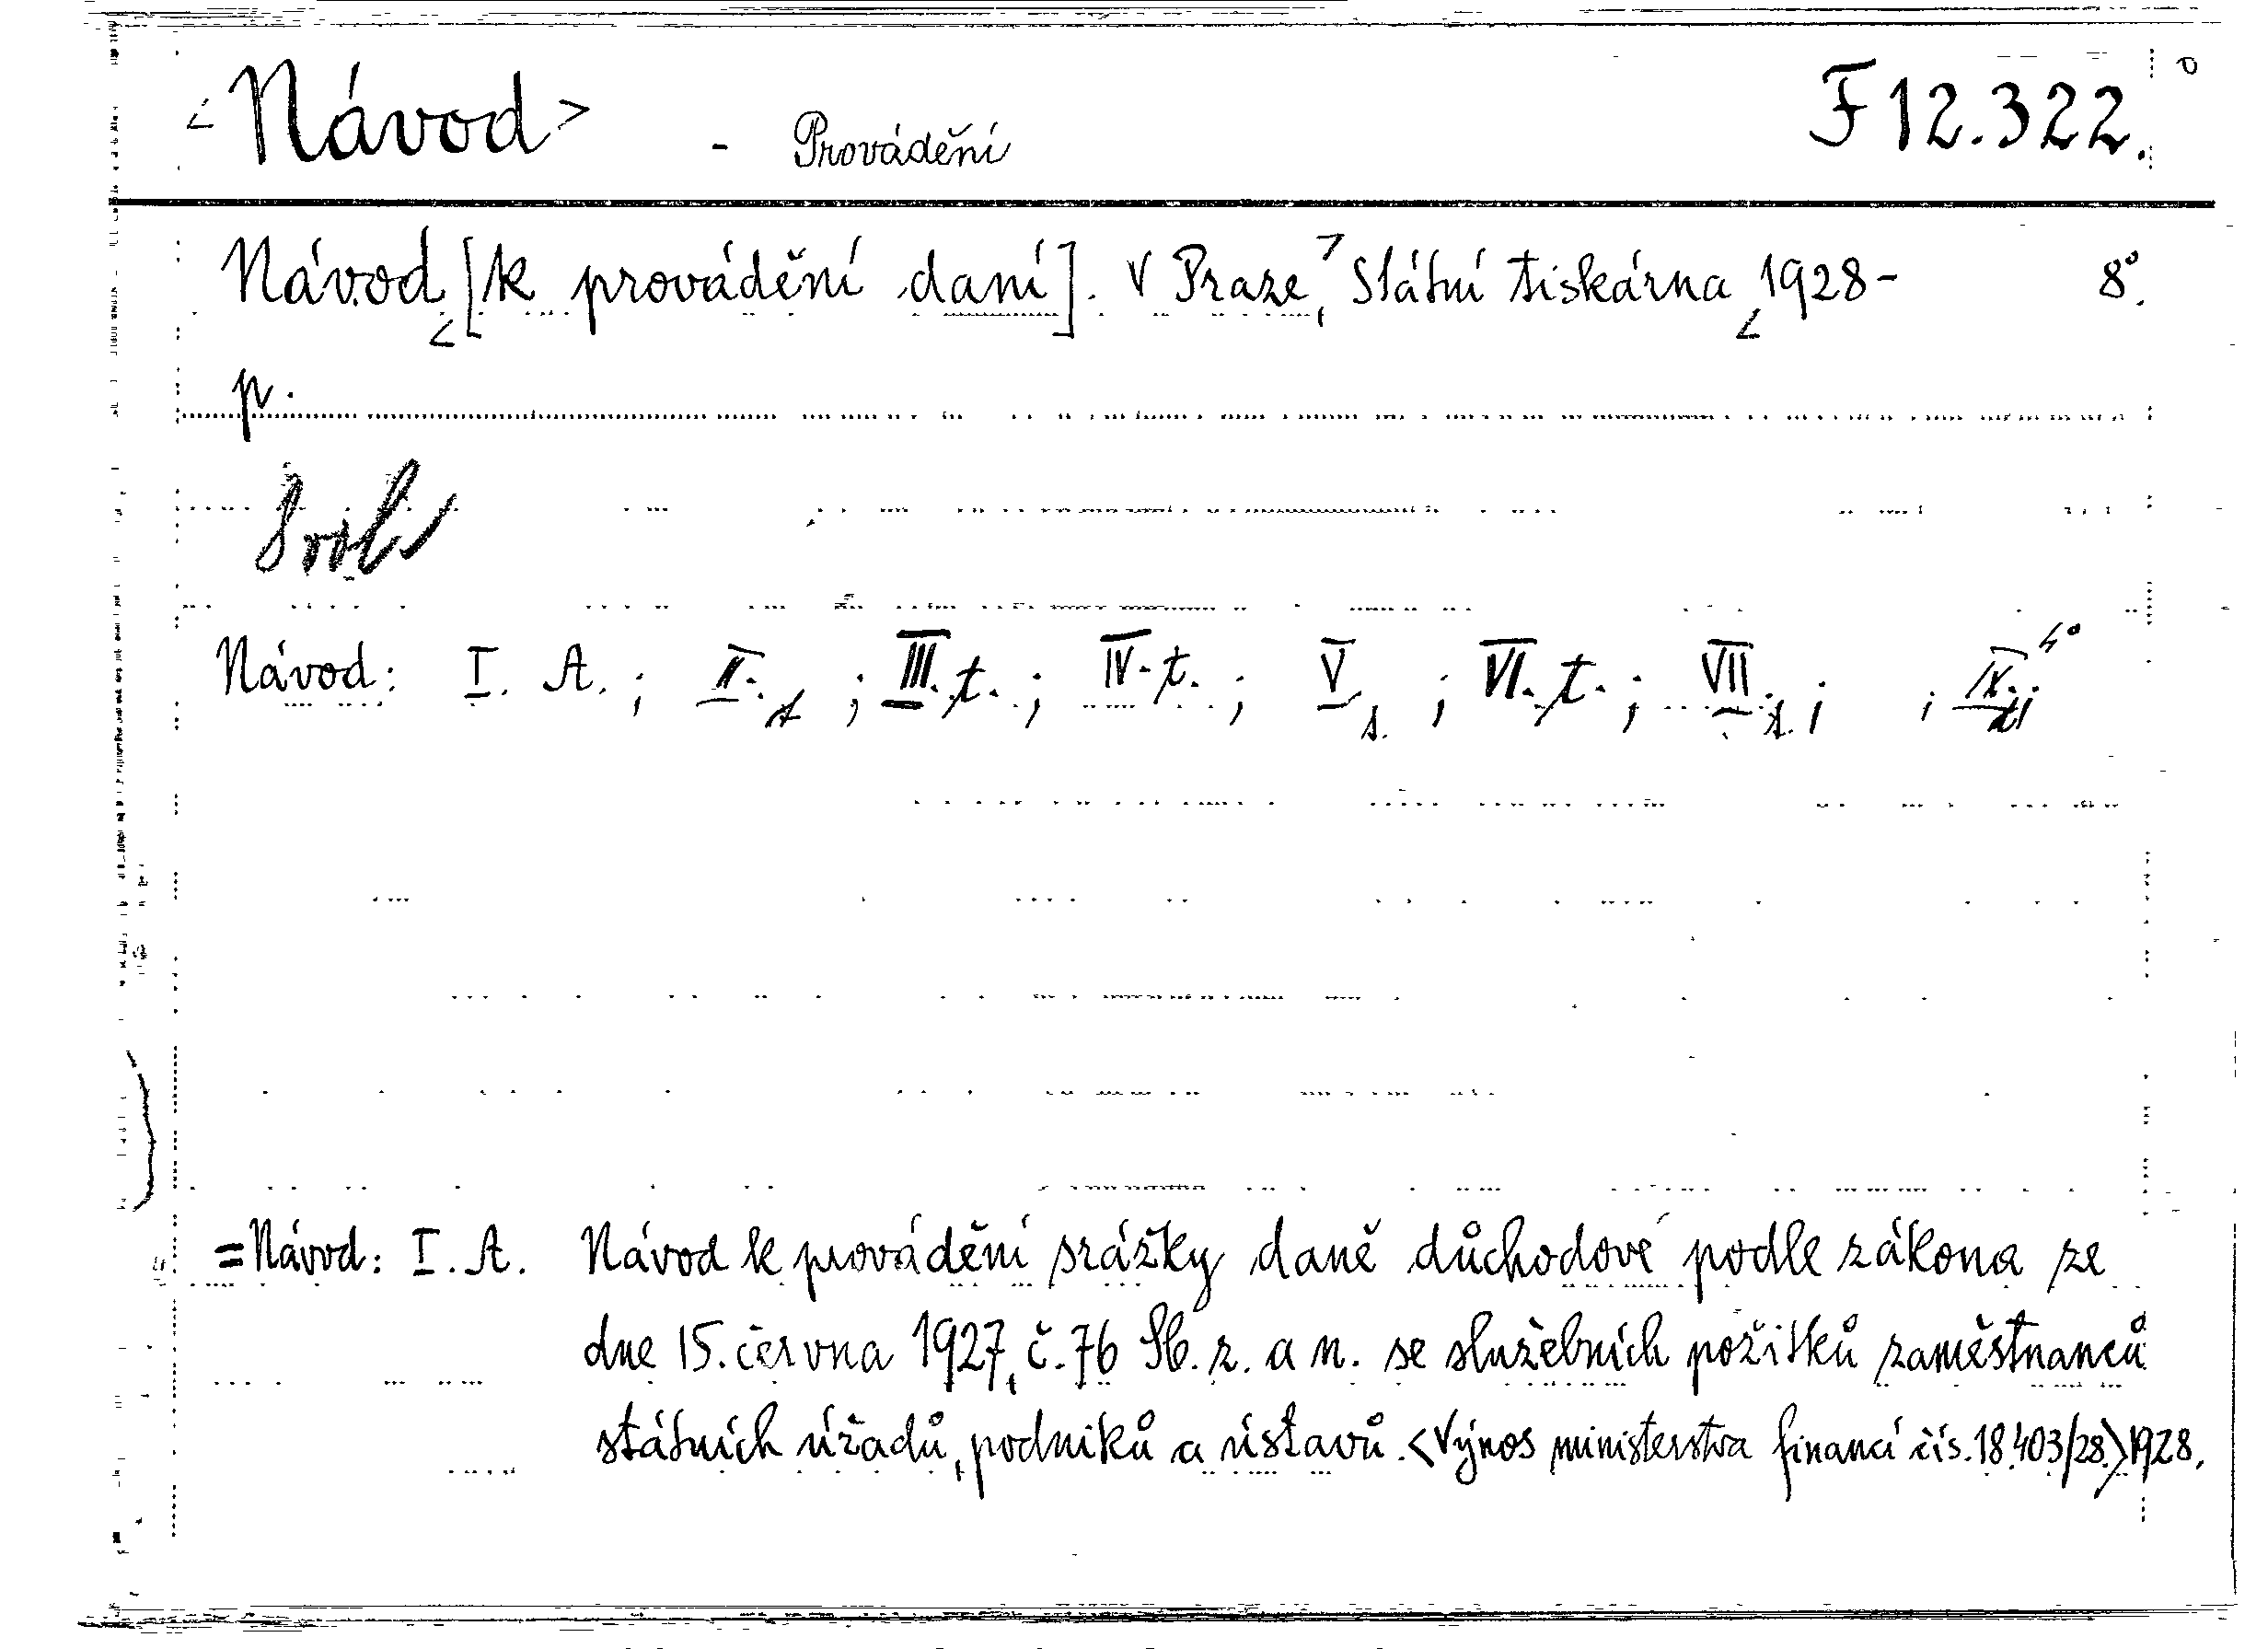 <Návod> - Provádění F 12.322.
Návod [k provádění daní]. V Praze, Státní tiskárna 1928- 8°.
p.
Návod: I. A.; II. s; III. t.; IV. t.; V s.; VI. t.; VII s.; ; IX. 4°
=Návod: I. A. Návod k provádění srážky daně důchodové podle zákona ze
dne 15. června 1927, č. 76 Sb. z. a n. se služebních požitků zaměstnanců
státních úřadů, podniků a ústavů. <Výnos ministerstva financí čís. 18.403/28.> 1928.